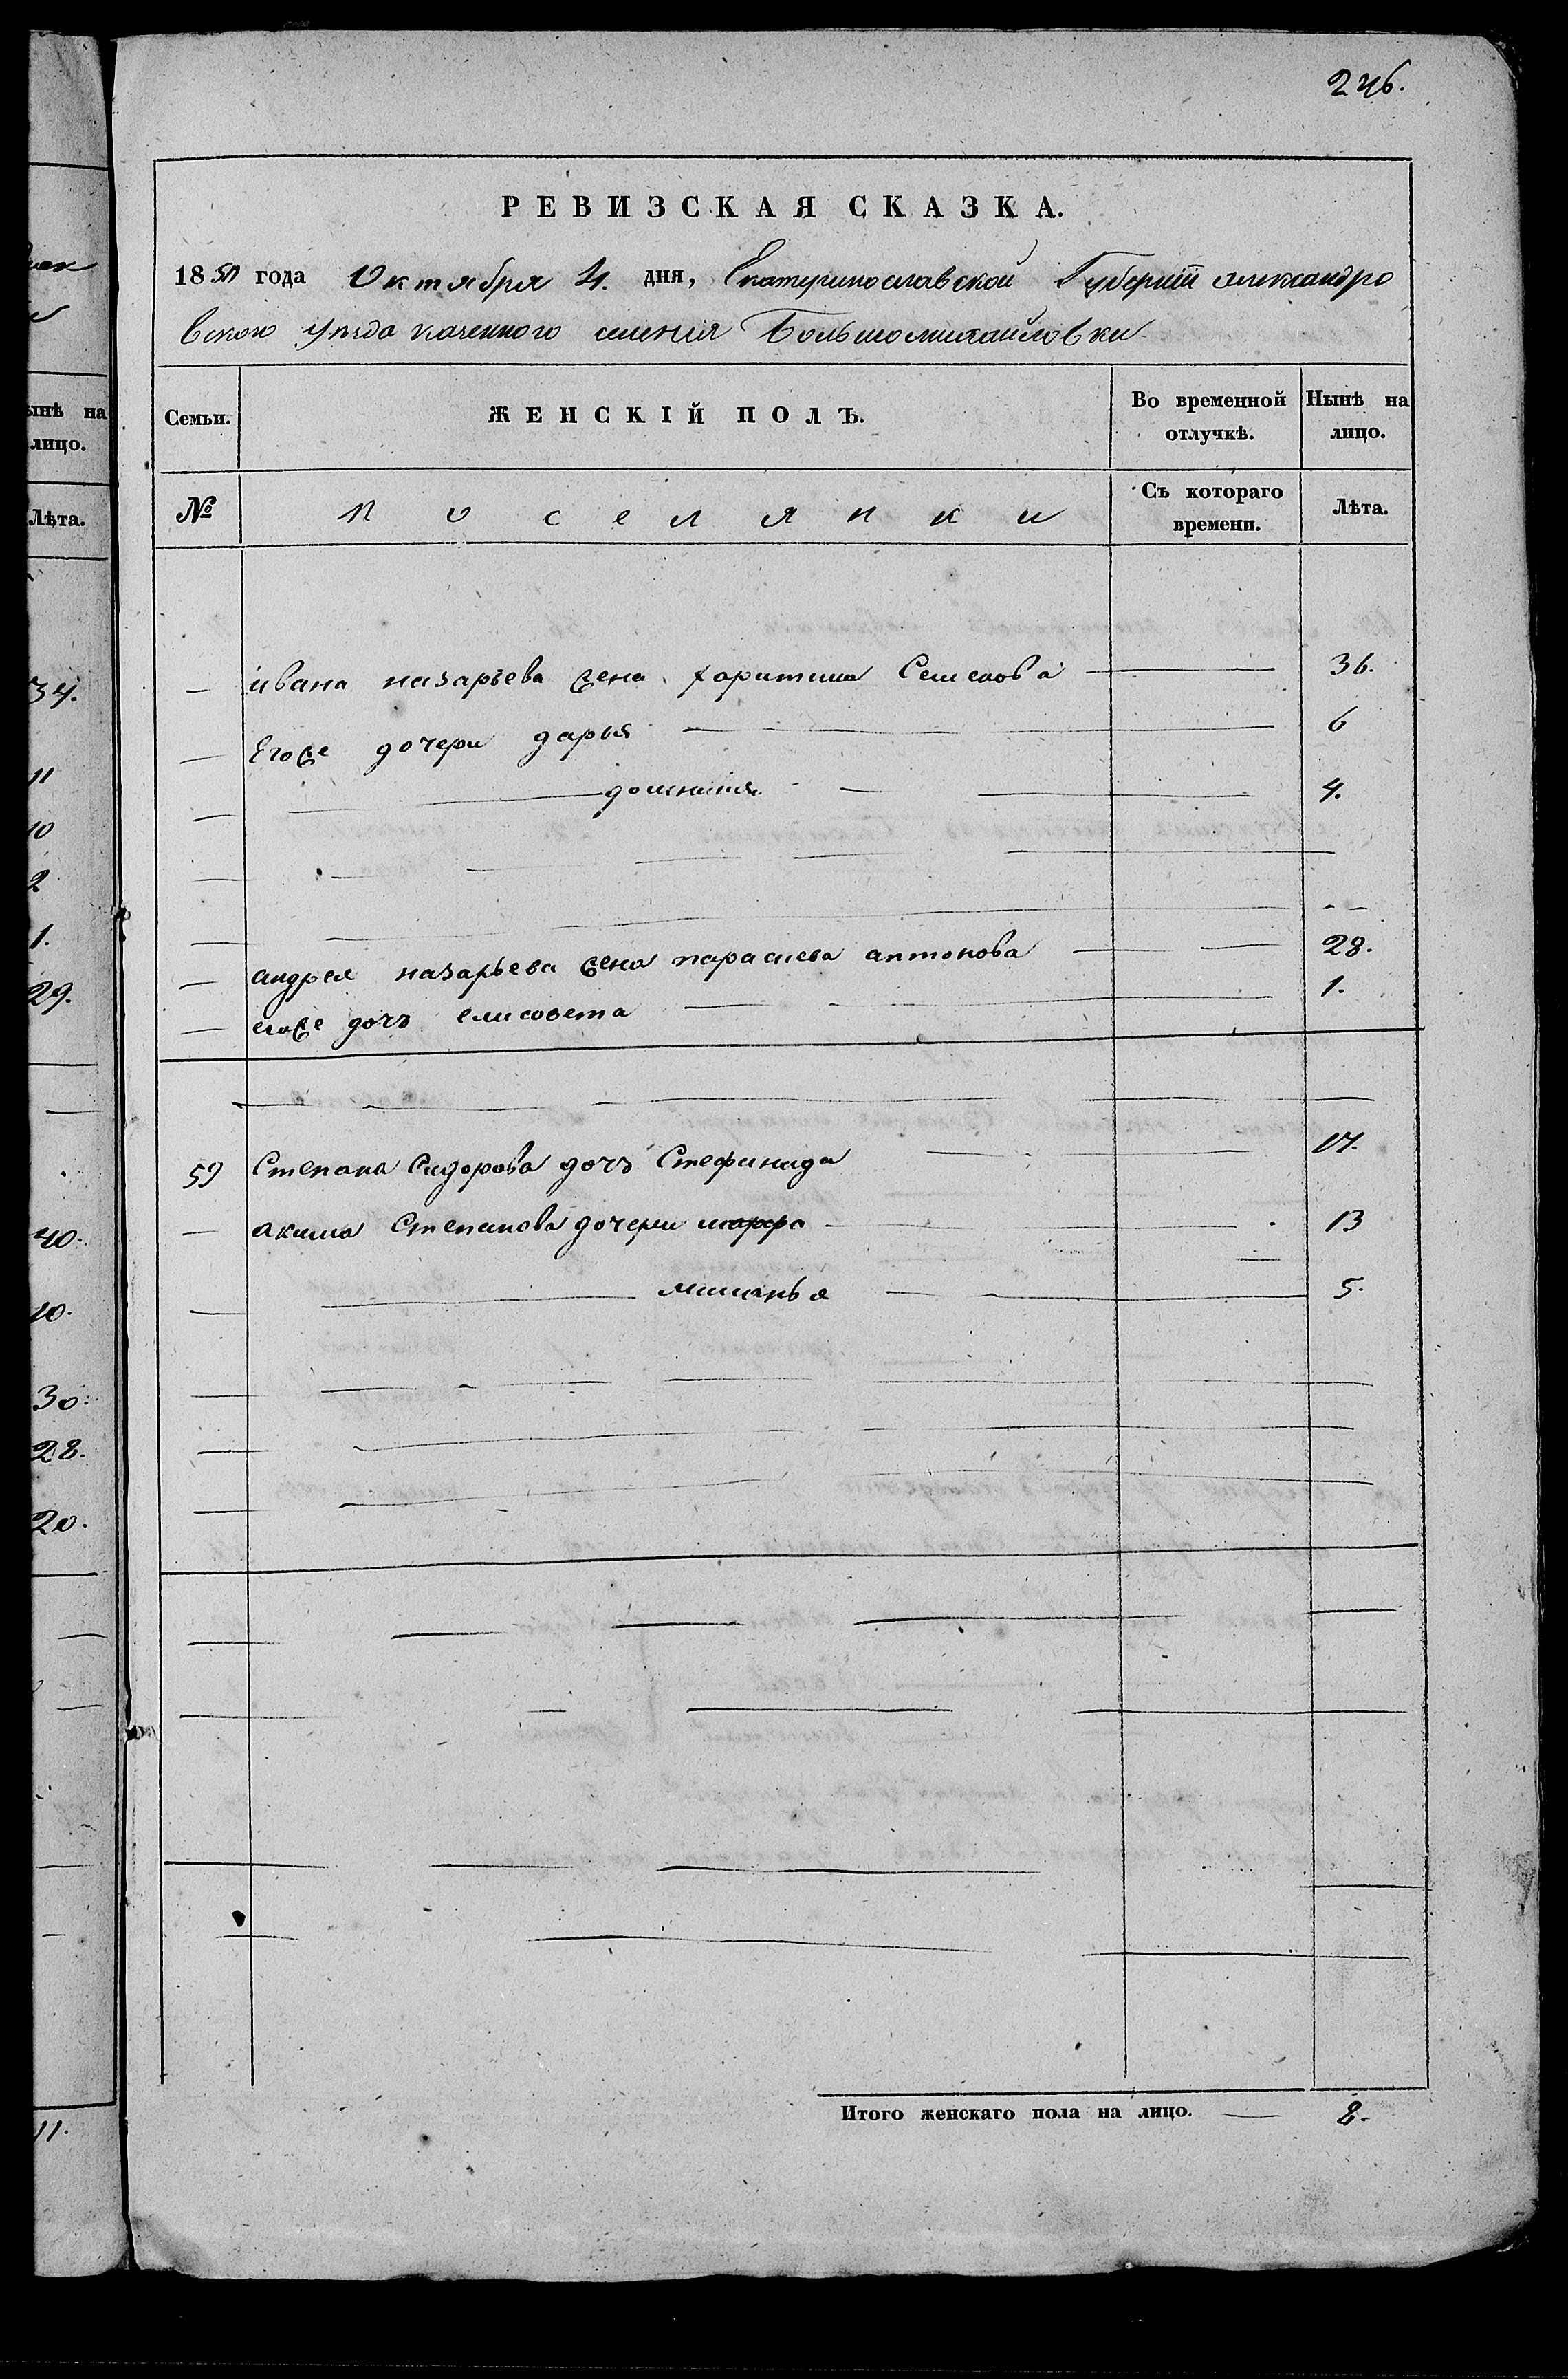 246.
РЕВИЗСКАЯ СКАЗКА.
1850 года Октября 4. дня, Екатеринославской Губернiи александро
вского уезда казенного селения Большомихайловки
Семьи. ЖЕНСКІЙ ПОЛЪ. Во временной отлучкѣ. Нынѣ на лицо.
№ поселянки Съ котораго времени. Лѣта.
— ивана назарьева жена харитина Семенова — 36.
— Егоже дочери дарья — 6
— домникия — 4.
— андрея назарьева жена параскева антонова — 28.
— егоже дочь елисовета — 1.
59 Степана Сидорова дочь Стефанида — 17.
— акима Степанова дочери марфа — 13
— миланья — 5.
Итого женскаго пола на лицо. — 8.
ынѣ на
лицо.
Лѣта.
34.
11
10
2
1.
29.
40.
10.
30.
28.
20.
11.